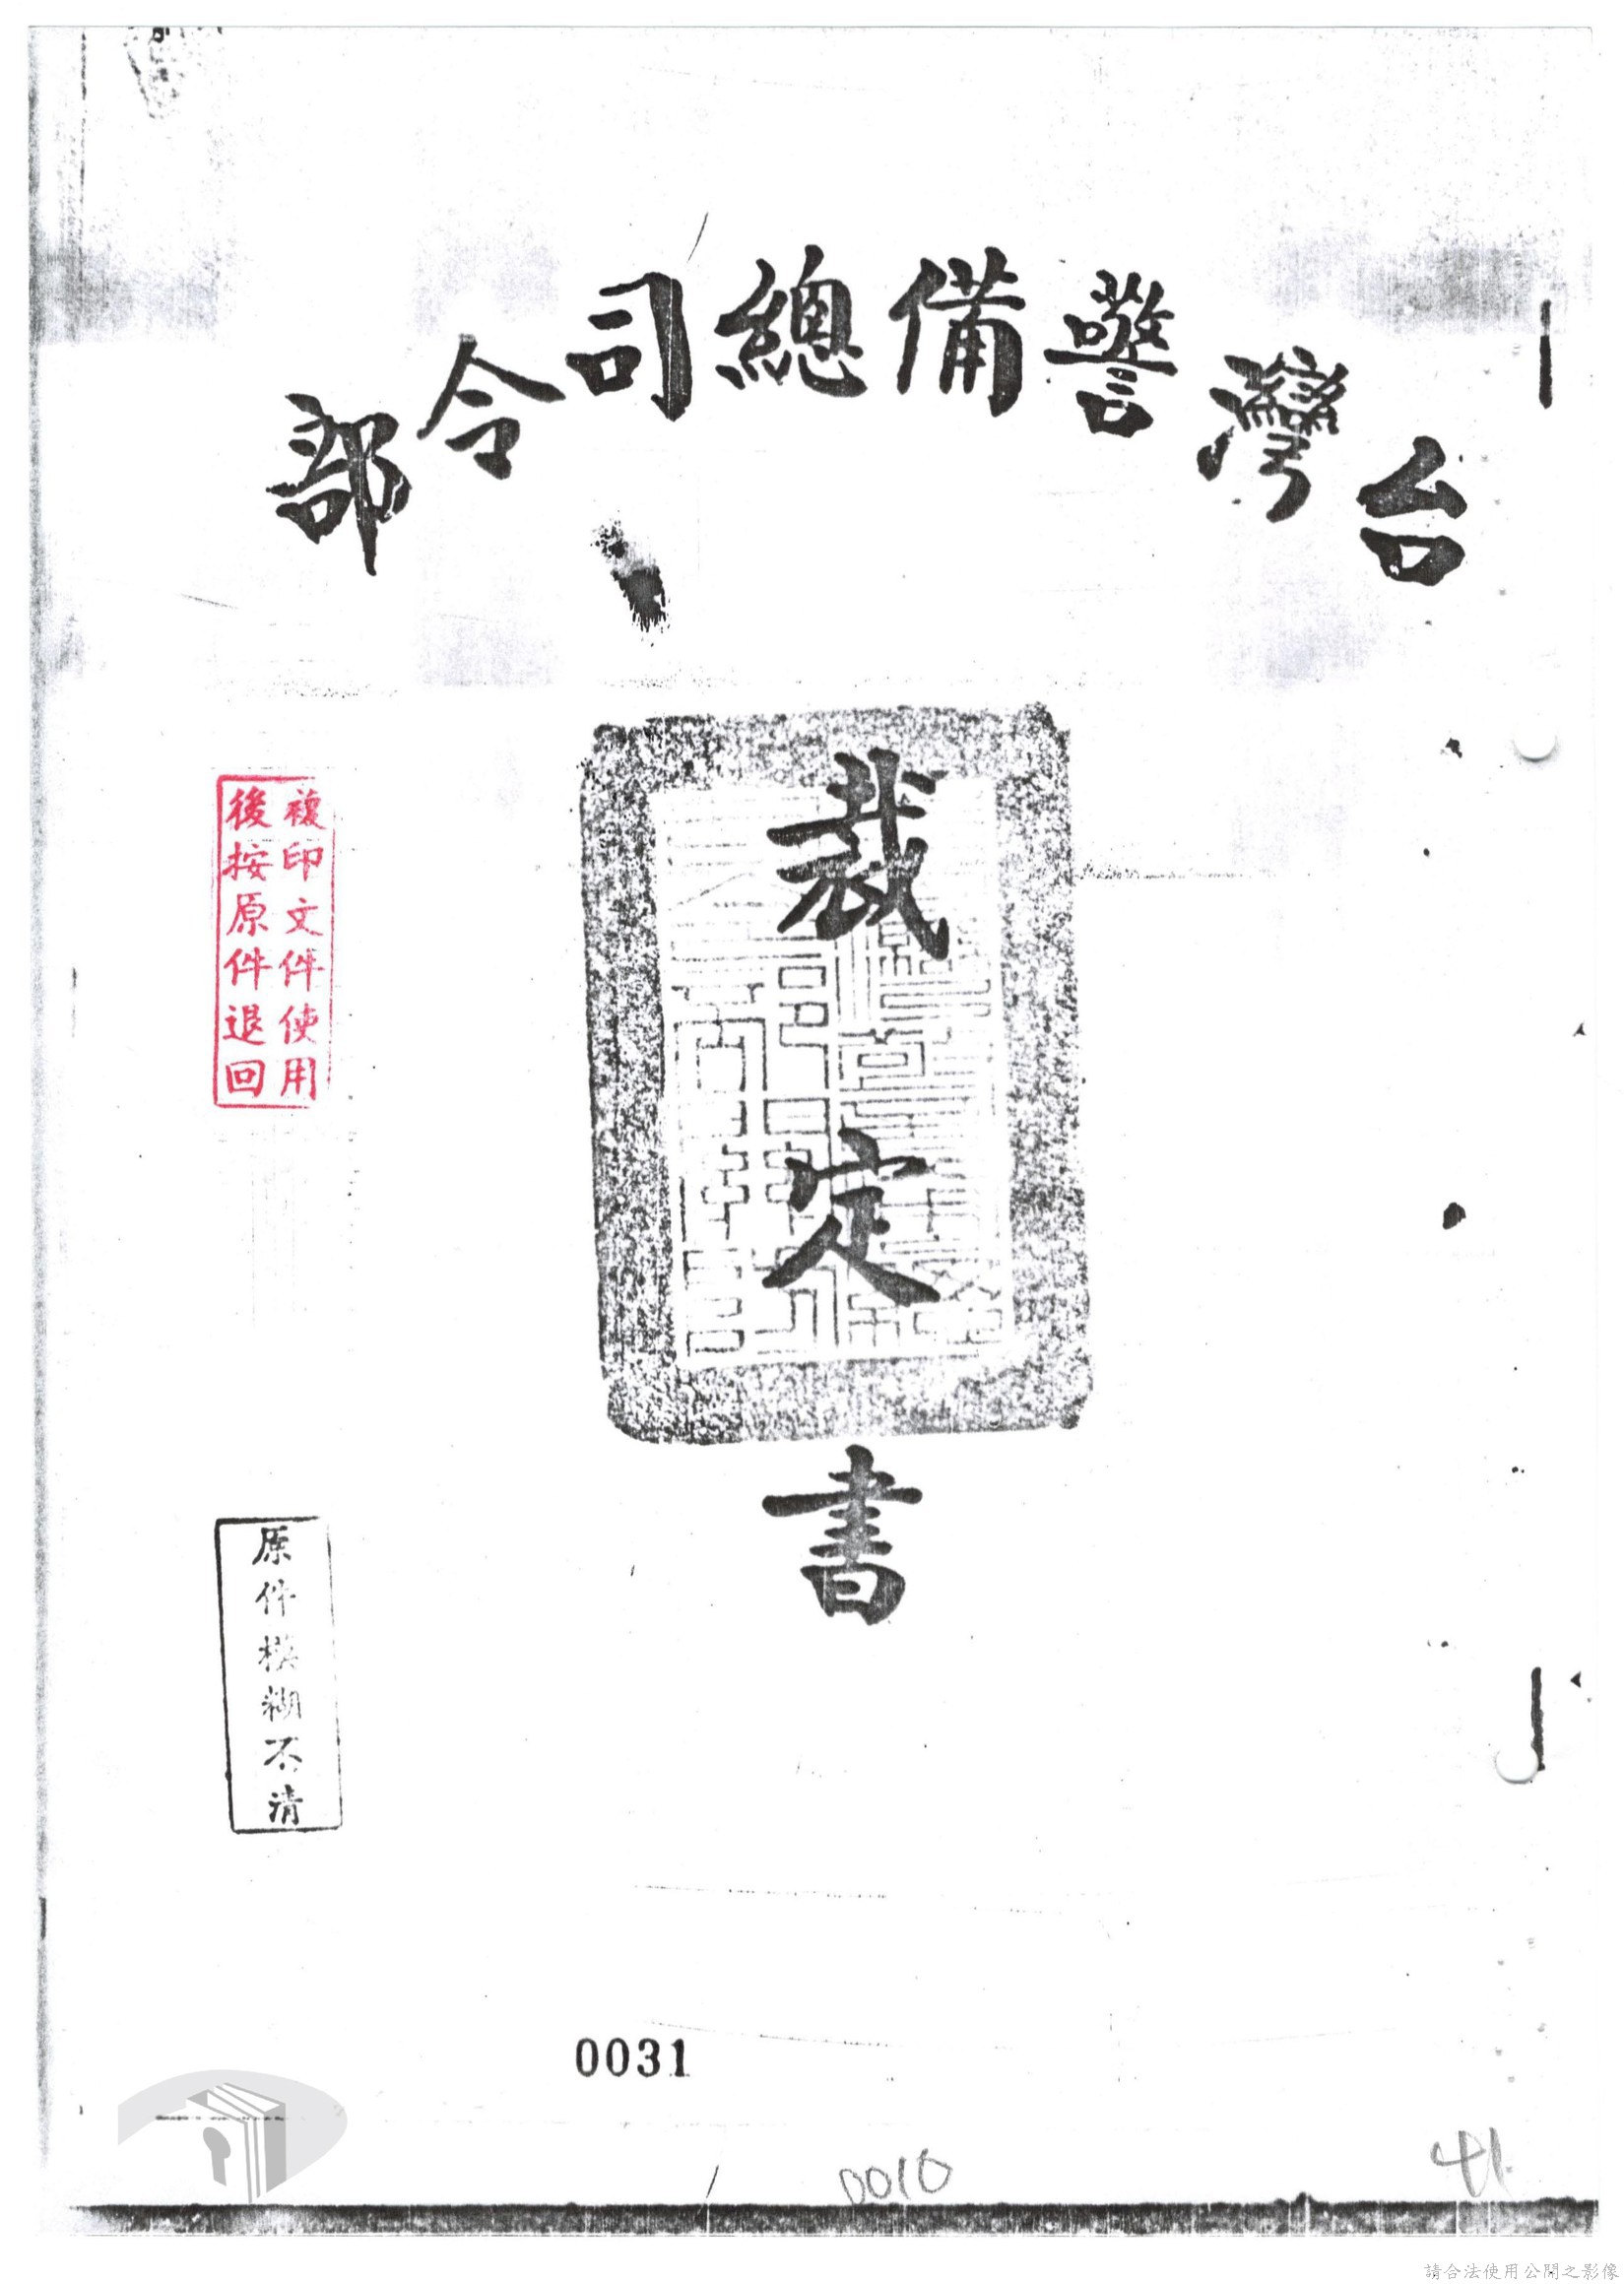 台灣警備總司令部
裁定書
複印文件使用
後按原件退回
原件模糊不清
0031
0010
41
請合法使用公開之影像